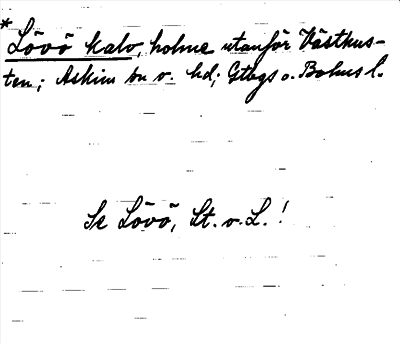 * Lövö kalv, holme utanför Västkus-
ten; Askim sn o. hd; Gtbgs o. Bohus l.
Se Lövö, St. o. L.!